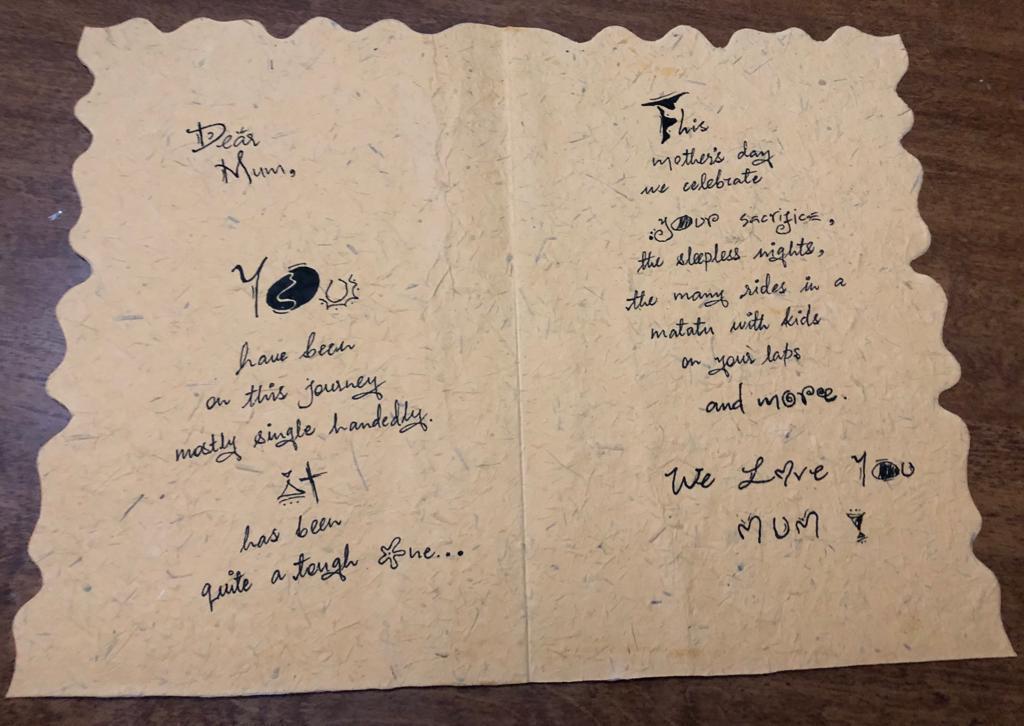 Dear
Mum,
You
have been
on this journey
mostly single handedly.
It
has been
quite a tough one...
This
mother's day
we celebrate
your sacrifice,
the sleepless nights,
the many rides in a
matatu with kids
on your laps
and more.
We Love You
MUM